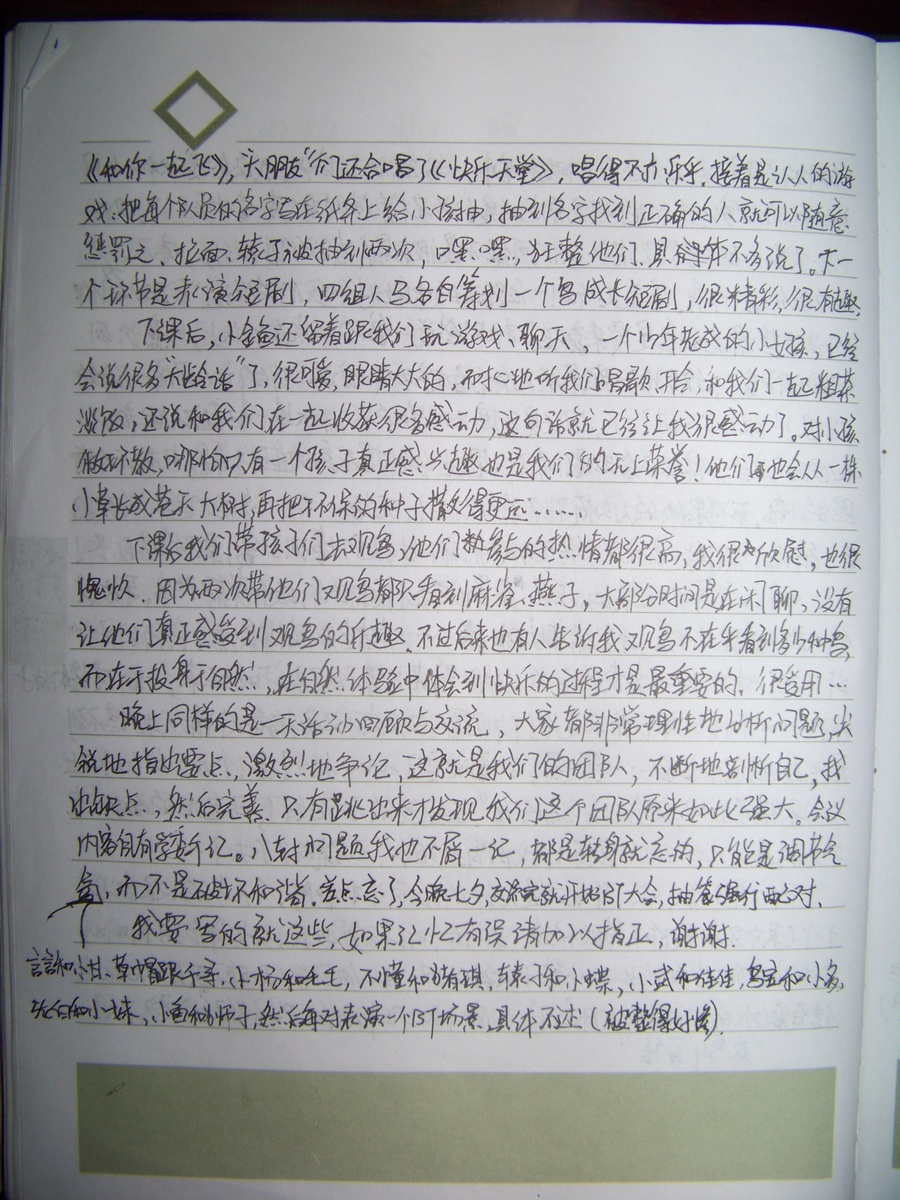 《和你一起飞》,“大朋友”们还合唱了《快乐天堂》,唱得不亦乐乎.接着是认人的游
戏.把每个队员的名字写在纸条上给小孩抽,抽到名字找到正确的人就可以随意
惩罚之.拉面、辕子被抽到两次,嘿嘿,狂整他们.具体不多说了。下一
个环节是表演短剧,四组人马各自筹划一个鸟成长短剧,很精彩,很有趣,
下课后,小鱼还留着跟我们玩游戏、聊天,一个少年老成的小女孩,已经
会说很多“大龄话”了,很可爱,眼睛大大的,耐心地听我们唱歌、开会,和我们一起粗茶
淡饭,还说和我们在一起收获很多感动,这句话就已经让我很感动了。对小孩
哪怕只有一个孩子真正感兴趣也是我们的无上荣誉!他们再也会从一株
小草长成苍天大树,再把环保的种子撒得更远……
下课后我们带孩子们去观鸟,他们参与的热情都很高,我很欣慰,也很
愧疚.因为两次带他们观鸟都只看到麻雀、燕子,大部分时间是在闲聊,没有
让他们真正感受到观鸟的乐趣.不过后来也有人告诉我观鸟不在乎看到多少种鸟,
而在于投身于自然,在自然体验中体会到快乐的过程才是最重要的.很受用…
晚上同样的是一天活动回顾与交流,大家都非常理性地分析问题,尖
锐地指出要点,激烈地争论,这就是我们的团队,不断地剖析自己,找
出缺点,然后完善.只有跳出来才发现我们这个团队原来如此强大。会议
内容自有学委记。八卦问题我也不屑一记,都是转身就忘的,只能是调节气
氛,而不是破坏和谐.差点忘了,今晚七夕,交流完就开始BT大会,抽签强行配对.
我要写的就这些,如果记忆有误请加以指正,谢谢.
言言和小甘、草帽跟千寻、小杨和毛毛,不懂和猪琪,辕子和小蝶,小武和佳佳,鸟宝和小多,
和小妹,小鱼和狮子,然后每对表演一个BT场景,具体不述(被整得好惨).